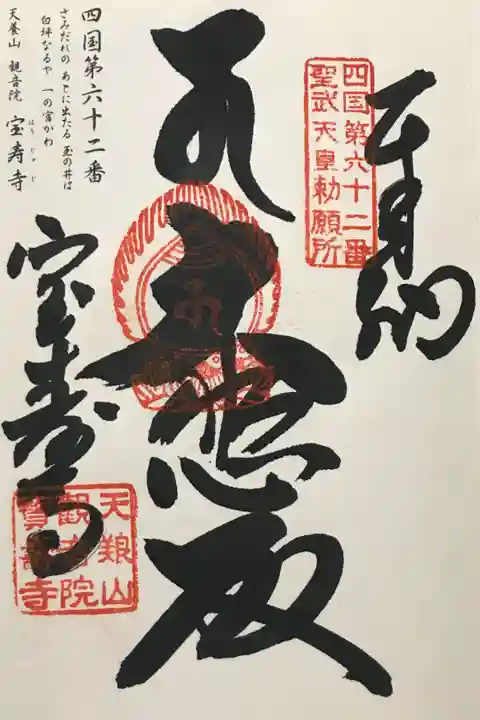 奉納
四国第六十二番
聖武天皇勅願所
大悲殿
宝寿寺
天養山
觀音院
寶壽寺
四国第六十二番
さみだれの あとに出たる 玉の井は
白坪なるや 一の宮かわ
天養山 観音院 宝寿寺
ほう じゅ じ